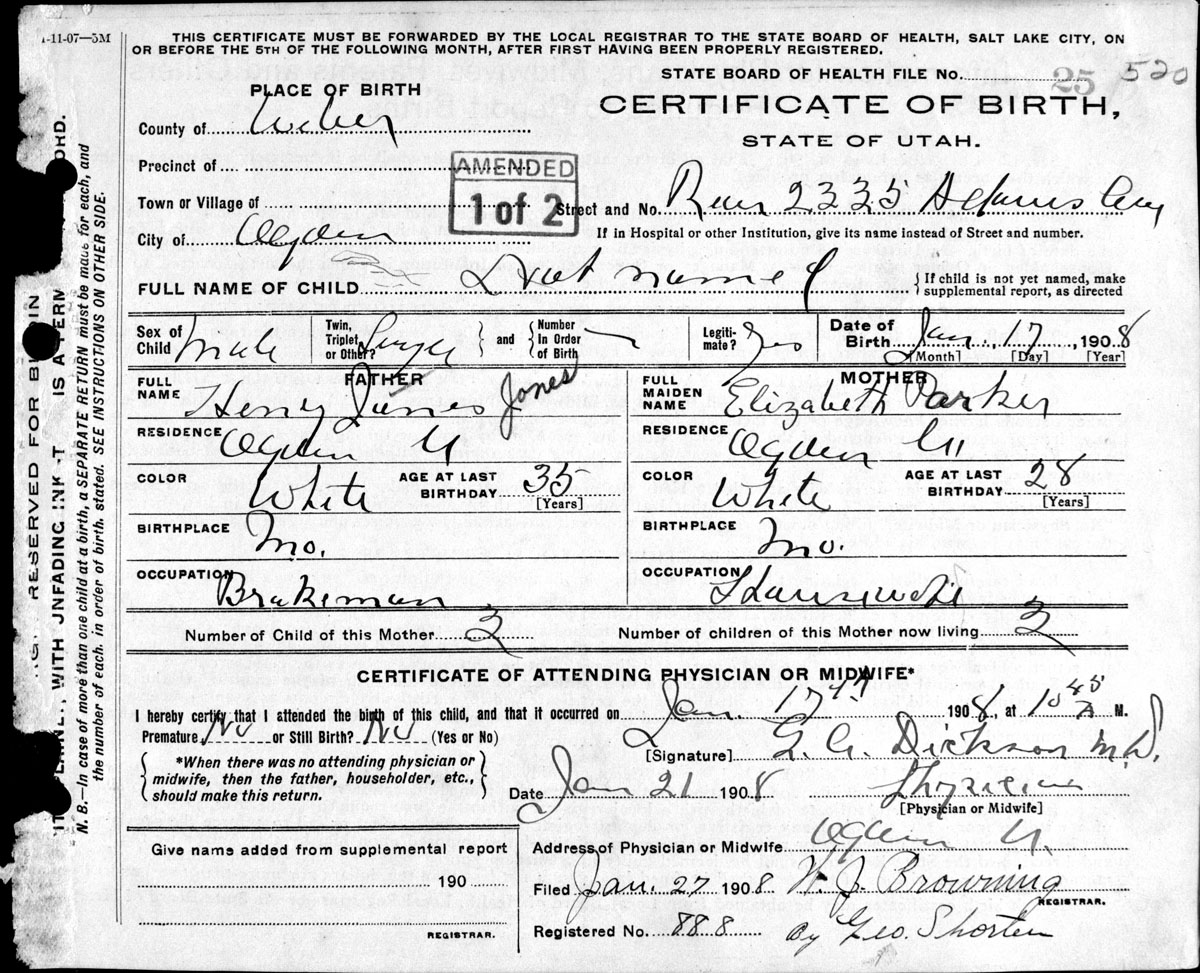 1-11-07—5M
THIS CERTIFICATE MUST BE FORWARDED BY THE LOCAL REGISTRAR TO THE STATE BOARD OF HEALTH, SALT LAKE CITY, ON
OR BEFORE THE 5TH OF THE FOLLOWING MONTH, AFTER FIRST HAVING BEEN PROPERLY REGISTERED.
STATE BOARD OF HEALTH FILE No. 25 520
PLACE OF BIRTH
CERTIFICATE OF BIRTH,
STATE OF UTAH.
County of Weber
Precinct of
AMENDED
1 of 2
Town or Village of
Street and No. Rear 2335 Adams Ave
City of Ogden
If in Hospital or other Institution, give its name instead of Street and number.
FULL NAME OF CHILD not named
{ If child is not yet named, make
supplemental report, as directed
Sex of Child Male
Twin, Triplet, or Other? Single } and { Number In Order of Birth —
Legiti-mate? Yes
Date of Birth Jan. 17, 1908
[Month] [Day] [Year]
FATHER
FULL NAME Henry James Jones
RESIDENCE Ogden U
COLOR White
AGE AT LAST BIRTHDAY 35
[Years]
BIRTHPLACE Mo.
OCCUPATION Brakeman
MOTHER
FULL MAIDEN NAME Elizabeth Parker
RESIDENCE Ogden U
COLOR White
AGE AT LAST BIRTHDAY 28
[Years]
BIRTHPLACE Mo.
OCCUPATION Housewife
Number of Child of this Mother
Number of children of this Mother now living
CERTIFICATE OF ATTENDING PHYSICIAN OR MIDWIFE*
I hereby certify that I attended the birth of this child, and that it occurred on Jan. 17th 1908, at 10 45 A M.
Premature? No or Still Birth? No (Yes or No)
[Signature] Dickson M.D.
{ *When there was no attending physician or
midwife, then the father, householder, etc.,
should make this return. }
Date Jan 21 1908 Physician
[Physician or Midwife]
Give name added from supplemental report
190
REGISTRAR.
Address of Physician or Midwife Ogden U.
Filed Jan. 27 1908 W. J. Browning
REGISTRAR.
Registered No. 888 By Geo. Shorten
RESERVED FOR
WITH UNFADING INK
IS A
N. B.—In case of more than one child at a birth, a SEPARATE RETURN must be made for each, and
the number of each, in order of birth, stated. SEE INSTRUCTIONS ON OTHER SIDE.